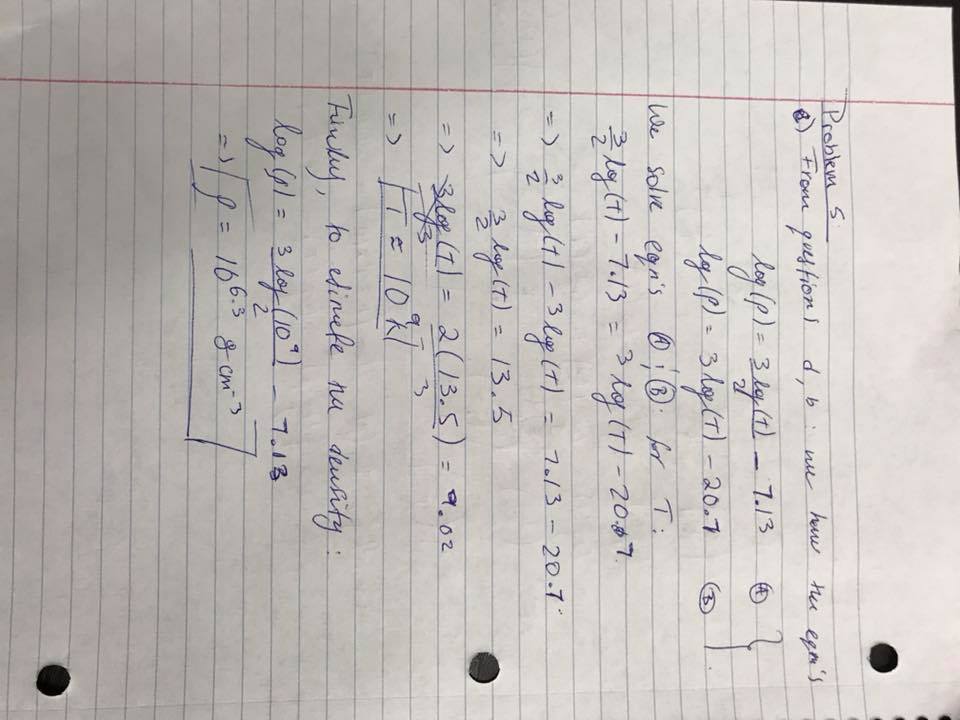 Problem 5
e) From questions d, b: we have the eqn's
log(ρ) = 3/2 log(T) - 7.13 (A)
log(ρ) = 3 log(T) - 20.7 (B)
We solve eqn's (A); (B): for T:
3/2 log(T) - 7.13 = 3 log(T) - 20.7.
=> 3/2 log(T) - 3 log(T) = 7.13 - 20.7.
=> 3/2 log(T) = 13.5
=> 3 log(T)/3 = 2(13.5)/3 = 9.02
=> T ≈ 10^9 K
Finally, to the density:
log(ρ) = 3/2 log(10^9) - 7.13
=> ρ = 10^6.3 g cm^-3